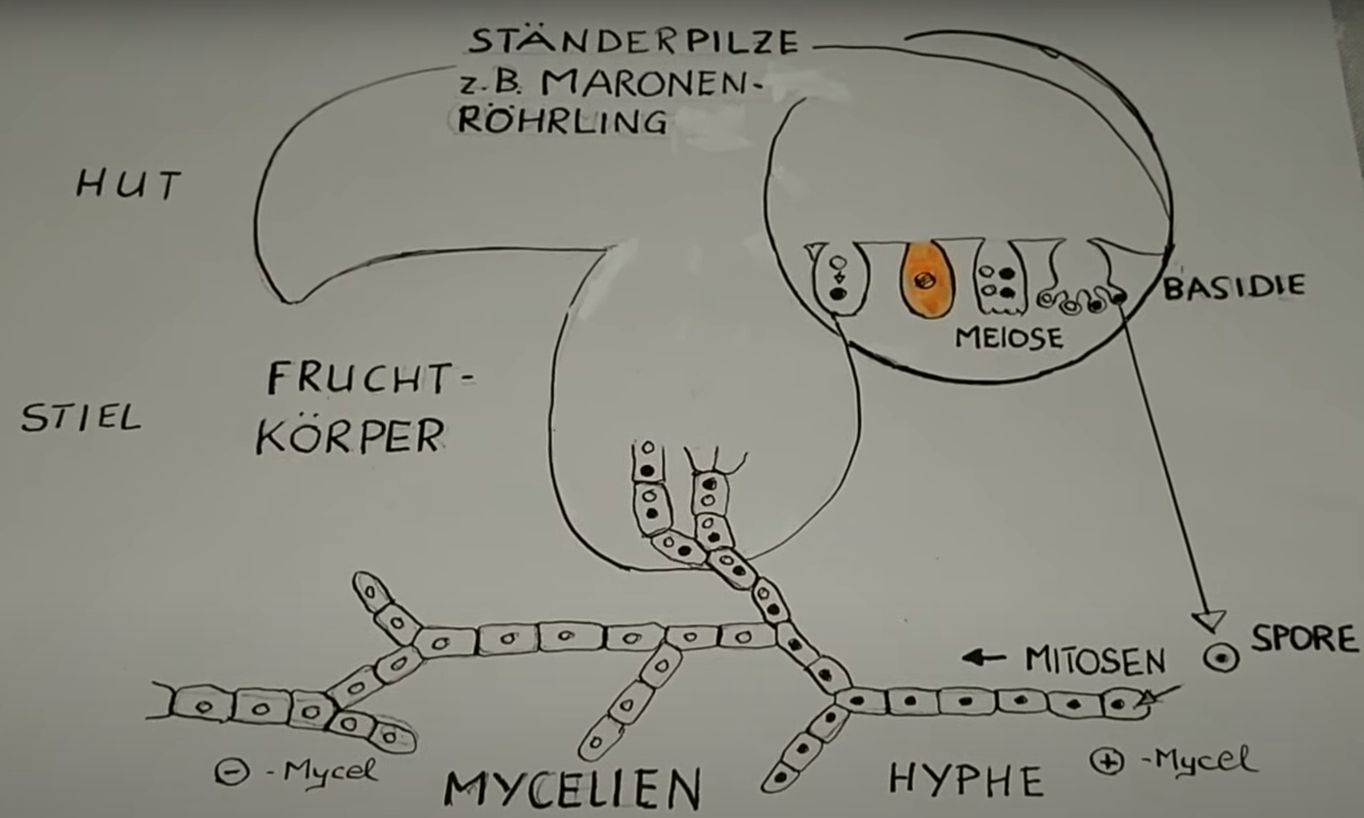 STÄNDERPILZE
z.B. MARONEN-
RÖHRLING
HUT
BASIDIE
MEIOSE
FRUCHT-
KÖRPER
STIEL
SPORE
← MITOSEN
⊖ - Mycel
MYCELIEN
HYPHE
⊕ -Mycel